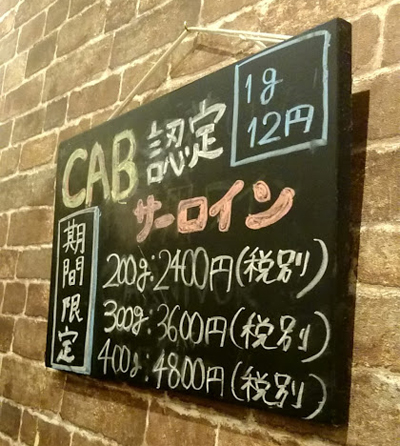 1g
12円
CAB 認定
サーロイン
期間限定
200g:2400円(税別)
300g:3600円(税別)
400g:4800円(税別)